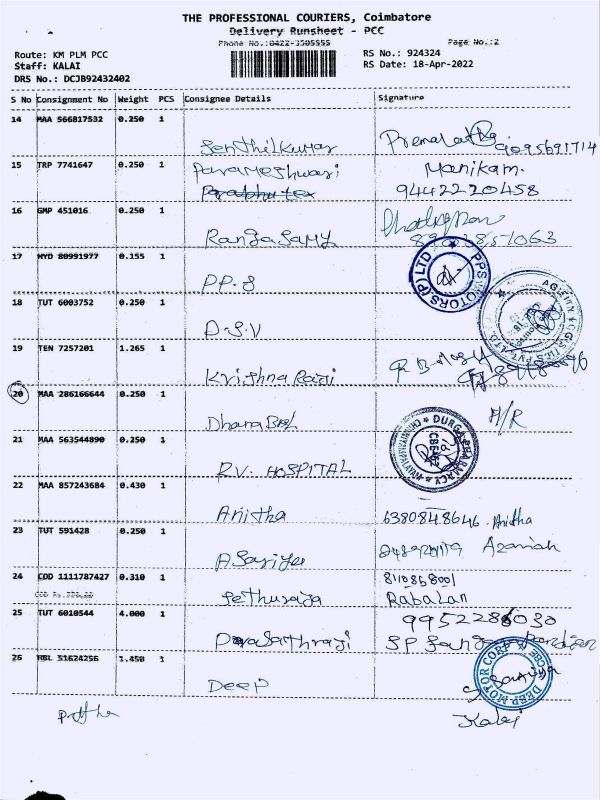 THE PROFESSIONAL COURIERS, Coimbatore
Delivery Runsheet - PCC
Phone No.:0422-3505555
Page No.:2
Route: KM PLM PCC
RS No.: 924324
Staff: KALAI
RS Date: 18-Apr-2022
DRS No.: DCJB92432402
S No Consignment No Weight PCS Consignee Details Signature
14 MAA 566817532 0.250 1
Senthilkumar Premalatha 9095691714
15 TRP 7741647 0.250 1 Parameshwari Manikam.
Prabhu tex 9442220458
16 GMP 451016 0.250 1
Ranga Samy
17 HYD 80991977 0.155 1
PP.8
PPS MOTORS (P) LTD
18 TUT 6003752 0.250 1
D.S.V
19 TEN 7257201 1.265 1
Krishna Raaj
20 MAA 286166644 0.250 1
DhanaBal
21 MAA 563544890 0.250 1
R.V. HOSPITAL
DURGA PHARMACY
22 MAA 857243684 0.430 1
Anitha 6380848646. Anitha
23 TUT 591428 0.250 1
24 COD 1111787427 0.310 1 8110868001
Sethuraja Rabalan
25 TUT 6010544 4.000 1 9952286030
26 HBL 51624256 1.450 1
Deep
DEEP MOTOR CORP CBE
Kalai